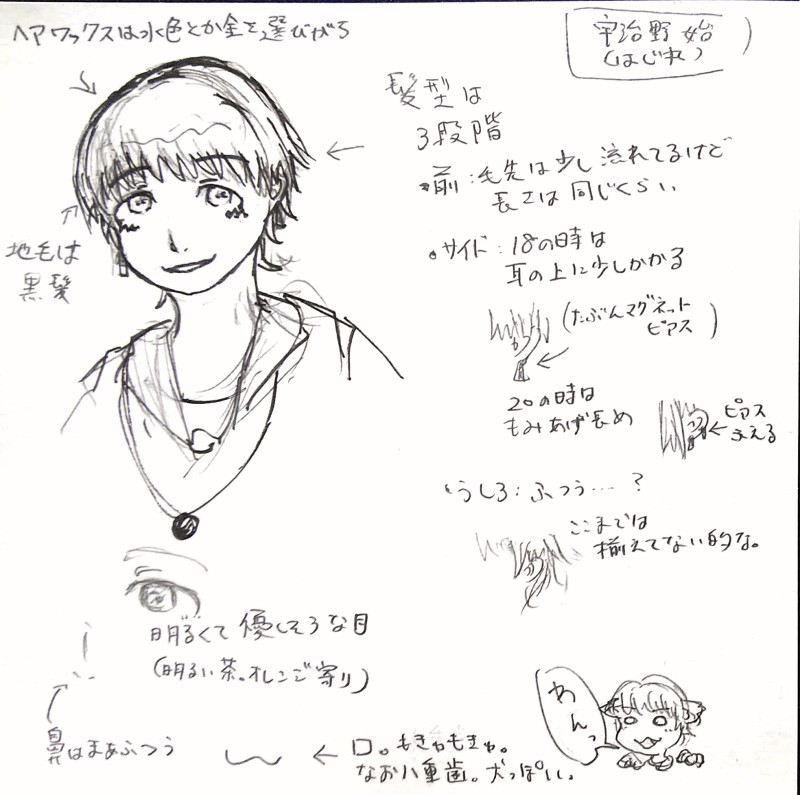 ヘアワックスは水色とか金を選びがち
宇治野 始
(はじめ)
髪型は
3段階
・前:毛先は少し流れてるけど
長さは同じくらい
地毛は
黒髪
・サイド:18の時は
耳の上に少しかかる
(たぶんマグネット
ピアス)
20の時は
もみあげ長め
ピアス
・うしろ:ふつう…?
ここまでは
揃えてない的な。
明るくて優しそうな目
(明るい茶。オレンジ寄り)
鼻はまあふつう
口。もきゅもきゅ。
なお八重歯。犬っぽい。
わんっ